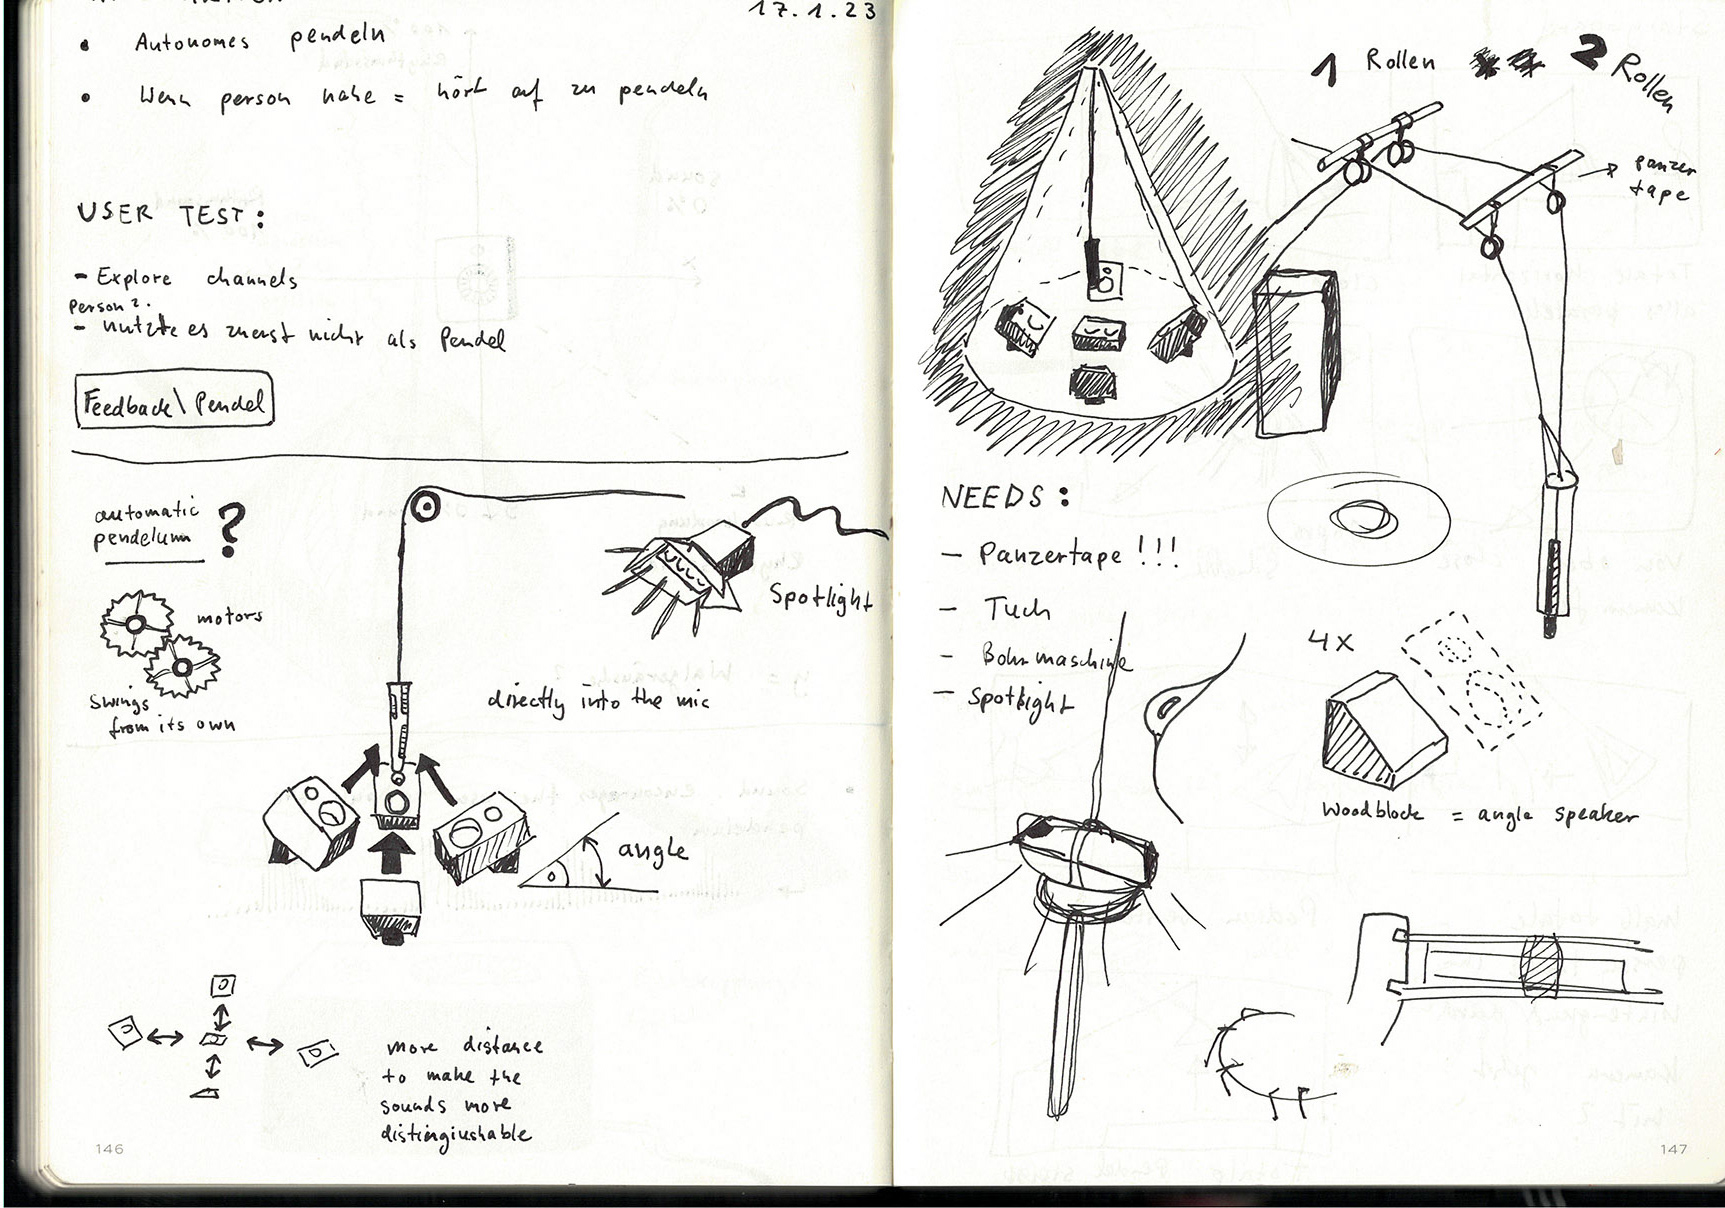 17.1.23
• Autonomes pendeln
• Wenn person nahe = hört auf zu pendeln
USER TEST:
- Explore channels
Person 2.
- nutzte es zuerst nicht als Pendel
Feedback\Pendel
automatic
pendelum ?
motors
Swings
from its own
Spotlight
directly into the mic
angle
more distance
to make the
sounds more
distingiushable
146
1 Rollen 2 Rollen
panzer
tape
NEEDS:
- Panzertape!!!
- Tuch
- Bohrmaschine
- Spotlight
4x
Woodblock = angle speaker
147